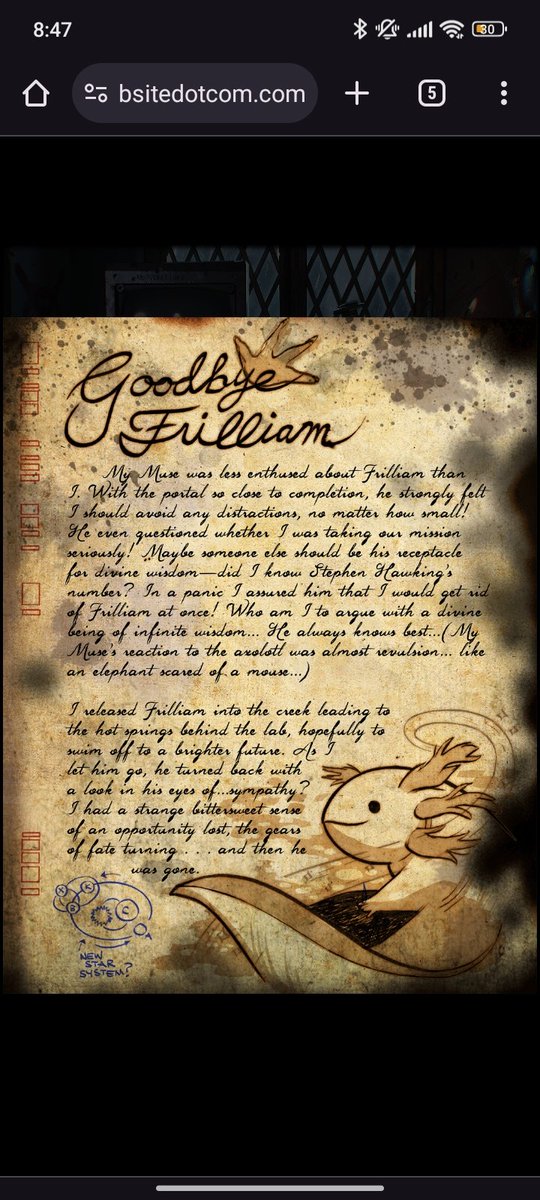 8:47
30
bsitedotcom.com
5
Goodbye
Frilliam
My Muse was less enthused about Frilliam than
I. With the portal so close to completion, he strongly felt
I should avoid any distractions, no matter how small!
He even questioned whether I was taking our mission
seriously! Maybe someone else should be his receptacle
for divine wisdom—did I know Stephen Hawking's
number? In a panic I assured him that I would get rid
of Frilliam at once! Who am I to argue with a divine
being of infinite wisdom... He always knows best...(My
Muse's reaction to the axolotl was almost revulsion... like
an elephant scared of a mouse...)
I released Frilliam into the creek leading to
the hot springs behind the lab, hopefully to
swim off to a brighter future. As I
let him go, he turned back with
a look in his eyes of...sympathy?
I had a strange bittersweet sense
of an opportunity lost, the gears
of fate turning . . . and then he
was gone.
X
K
B
C
NEW
STAR
SYSTEM?